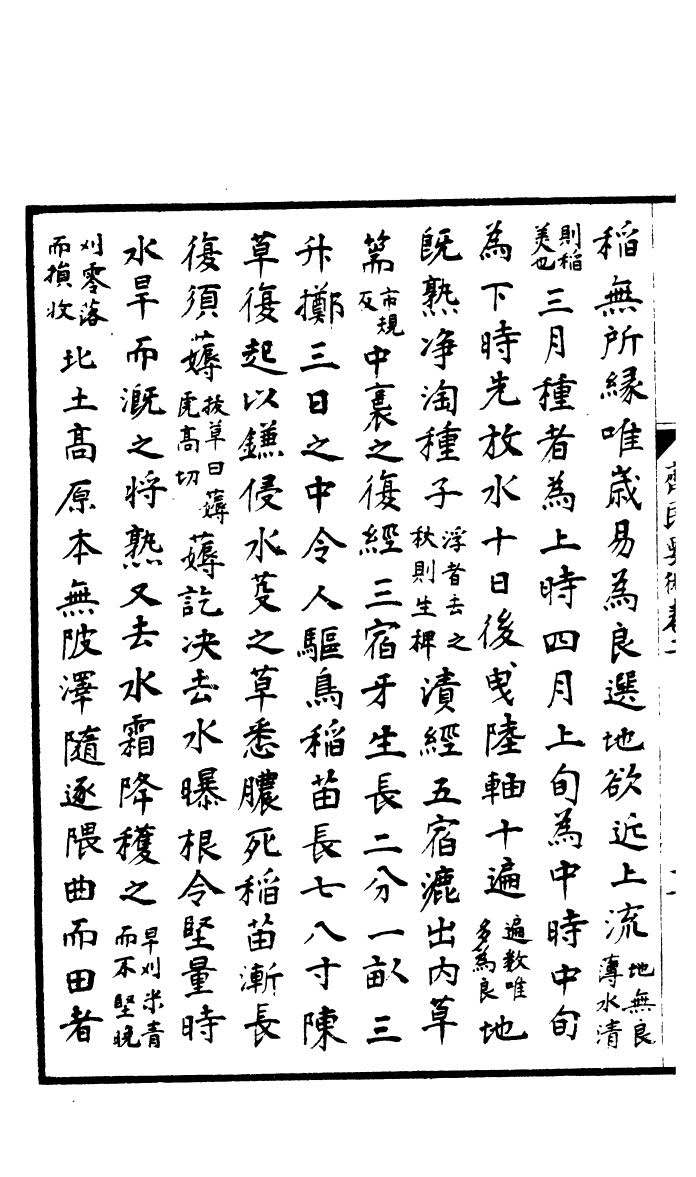 稻無所緣唯歲易為良選地欲近上流地無良薄水清
則稻美也三月種者為上時四月上旬為中時中旬
為下時先放水十日後曳陸軸十遍遍數唯多為良地
既熟净淘種子浮者去之秋則生稗漬經五宿漉出內草
篅市規反中裛之復經三宿牙生長二分一畝三
升擲三日之中令人驅鳥稻苗長七八寸陳
草復起以鎌侵水芟之草悉膿死稻苗漸長
復須薅拔草曰薅虎高切薅訖决去水曝根令堅量時
水旱而溉之將熟又去水霜降穫之早刈米青而不堅晚
刈零落而損收北土高原本無陂澤隨逐隈曲而田者
齊民要術卷二